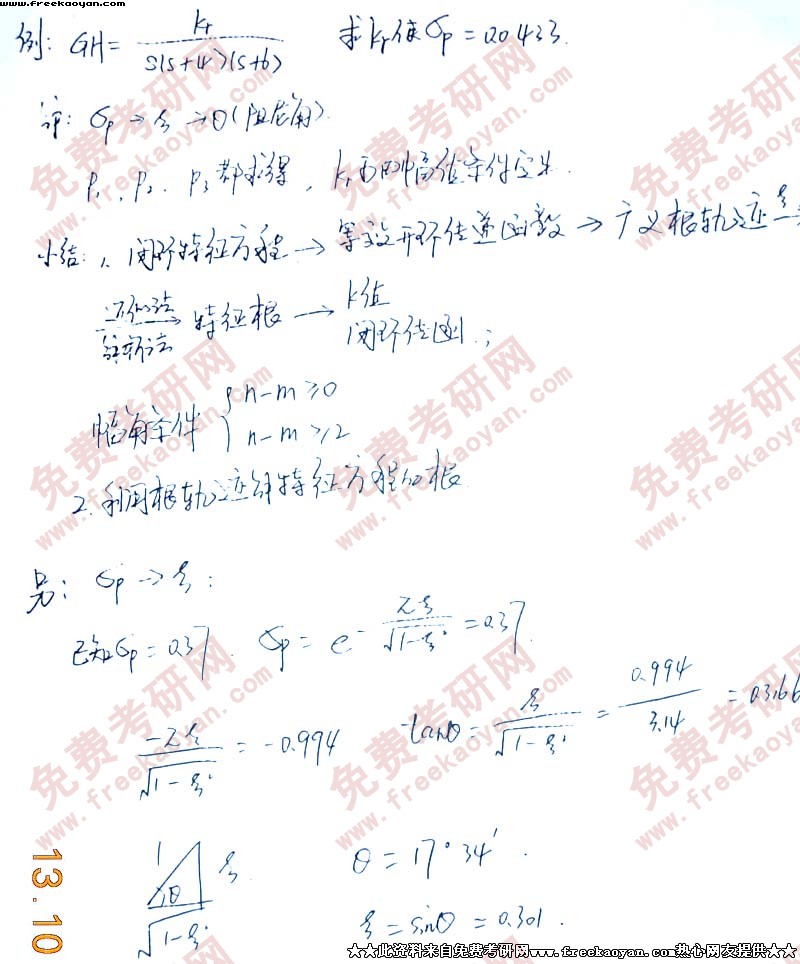 www.freekaoyan.com
例: GH = kr / s(s+4)(s+6) 求kr使σp = 0.0433.
评: σp → ξ → θ(阻尼角)
p1、p2、p3都求得, kr可由幅值条件定出.
小结: 1、闭环特征方程 → 等效开环传递函数 → 广义根轨迹 ξ
近似法 特征根 → k值
闭环传函;
幅角条件 { n-m ≥ 0
n-m ≥ 2
2. 利用根轨迹解特征方程的根
另: σp → ξ:
已知σp = 0.37. σp = e^- πξ/√(1-ξ²) = 0.37.
-πξ/√(1-ξ²) = -0.994 tanθ = ξ/√(1-ξ²) = 0.994/3.14 = 0.3166
1 θ ξ √(1-ξ²) θ = 17°34′.
ξ = sinθ = 0.301.
13.10
★★此资料来自免费考研网www.freekaoyan.com热心网友提供★★
免费考研网
www.freekaoyan.com